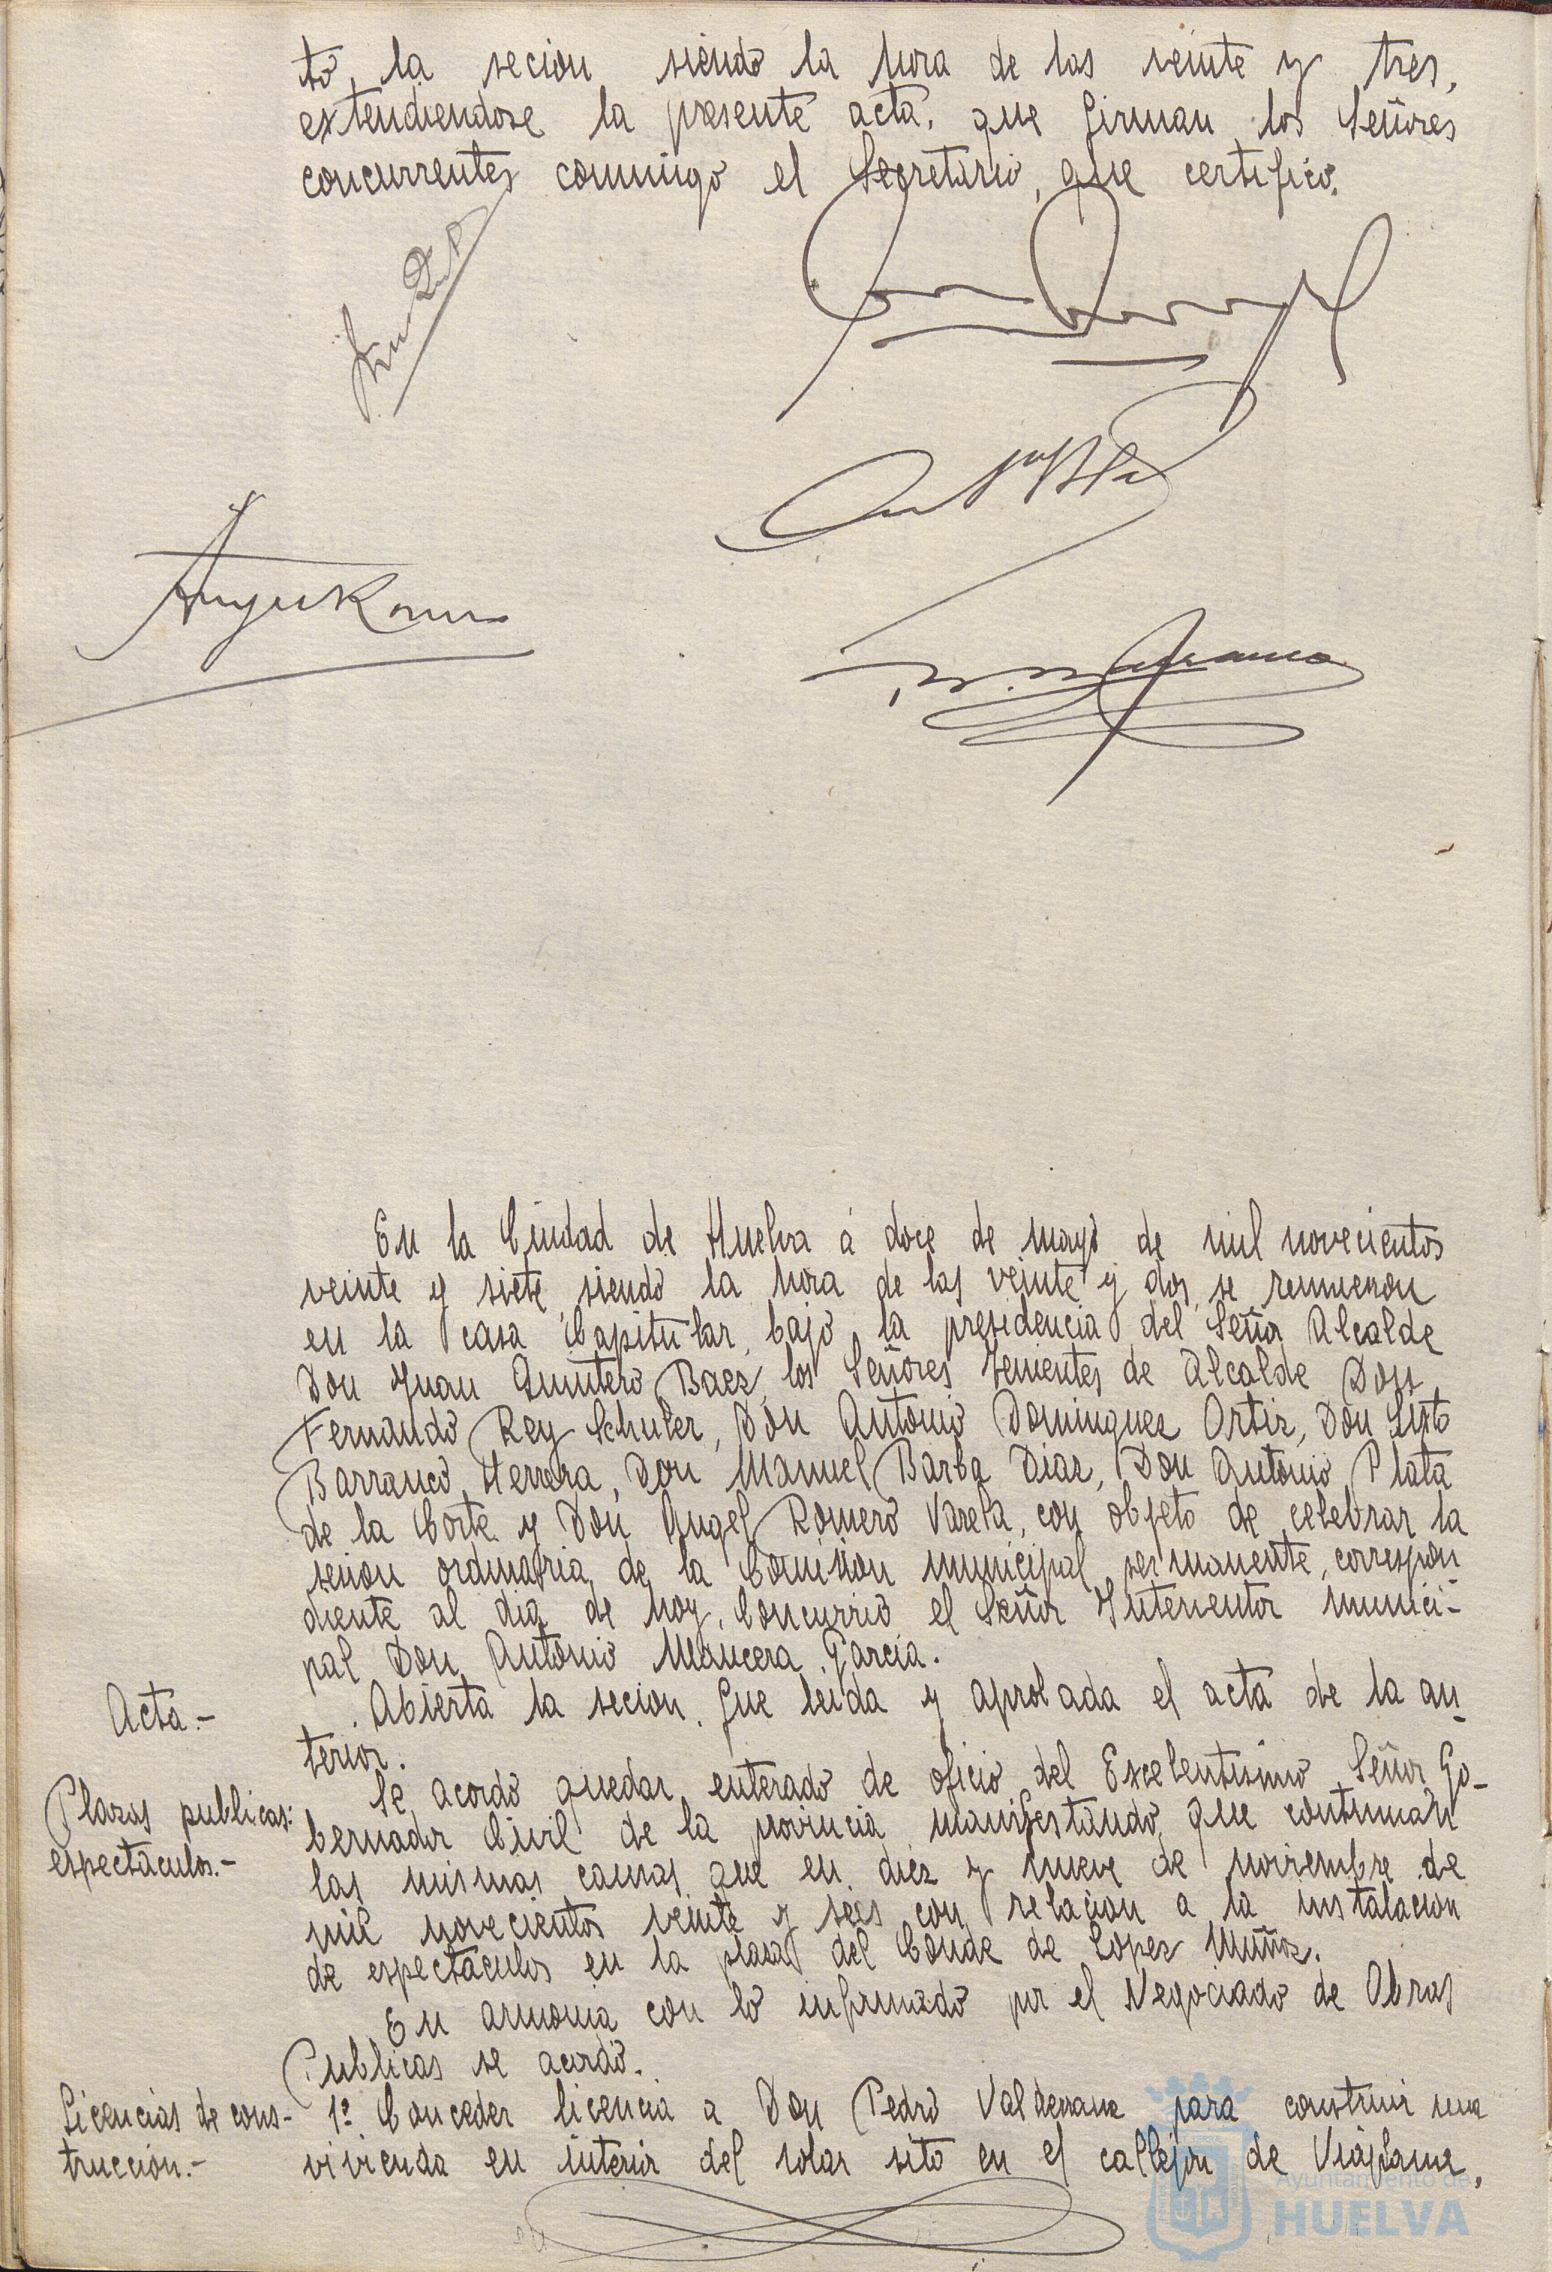 to, la secion siendo la hora de las veinte y tres,
extendiendose la presente acta, que firman los Señores
concurrentes conmigo el Secretario, que certifico.
Angel Romero
En la Ciudad de Huelva á doce de mayo de mil novecientos
veinte y siete, siendo la hora de las veinte y dos, se reunieron
en la casa Capitular, bajo la presidencia del Señor Alcalde
Don Juan Quintero Baez, los Señores Tenientes de Alcalde Don
Fernando Rey Schuler, Don Antonio Dominguez Ortiz, Don Sixto
Barranco Herrera, Don Manuel Barba Diaz, Don Antonio Plata
de la Corte y Don Angel Romero Varela, con objeto de celebrar la
secion ordinaria de la Comision municipal permanente, correspon
diente al dia de hoy. Concurrio el Señor Interventor munici-
pal Don Antonio Mancera Garcia.
Acta.-
Abierta la secion, fue leida y aprobada el acta de la an-
terior.
Plazas publicas:
espectaculos.-
Se acordo quedar enterado de oficio del Excelentisimo Señor Go-
bernador Civil de la provincia manifestando que continuan
las mismas causas que en diez y nueve de noviembre de
mil novecientos veinte y seis con relacion a la instalacion
de espectaculos en la plaza del Conde de Lopez Muñoz.
En armonia con lo informado por el Negociado de Obras
Publicas se acordo.
Licencias de cons-
truccion.-
1º Conceder licencia a Don Pedro para construir una
vivienda en interior del solar sito en el callejon de Viaplana,
Ayuntamiento de
HUELVA